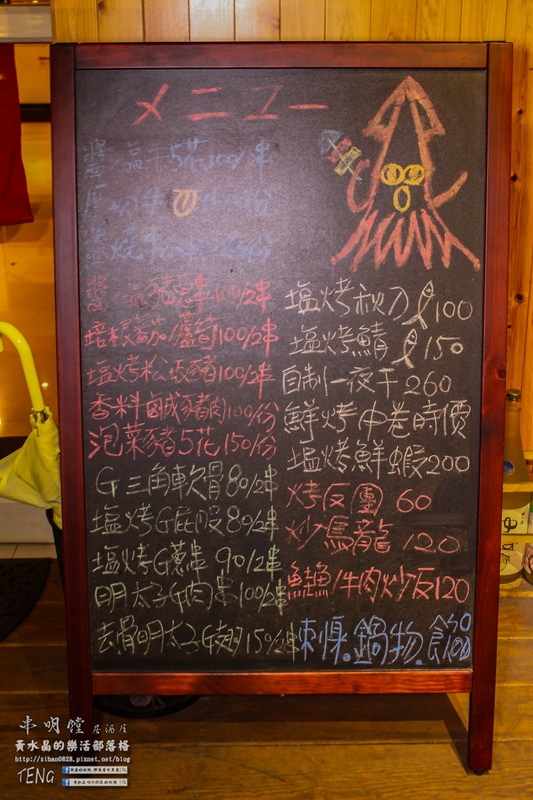 メニュー
醬/塩牛5花100/2串
燒牛
豬蔥串100/2串
培根番茄/蘆筍100/2串
塩烤松坂豬100/2串
香料鹹豬肉100/份
泡菜豬5花150/份
G三角軟骨80/2串
塩烤G屁股80/2串
塩烤G蔥串90/2串
明太子G肉串100/2串
去骨明太子G翅150/2串
塩烤秋刀 100
塩烤鯖 150
自制一夜干260
鮮烤中卷時價
塩烤鮮蝦200
烤反團 60
炒烏龍 120
鮭魚/牛肉炒反120
鍋物.飲
串明鏜 居酒屋
黃水晶的樂活部落格
http://zihao0828.pixnet.net/blog
TENG